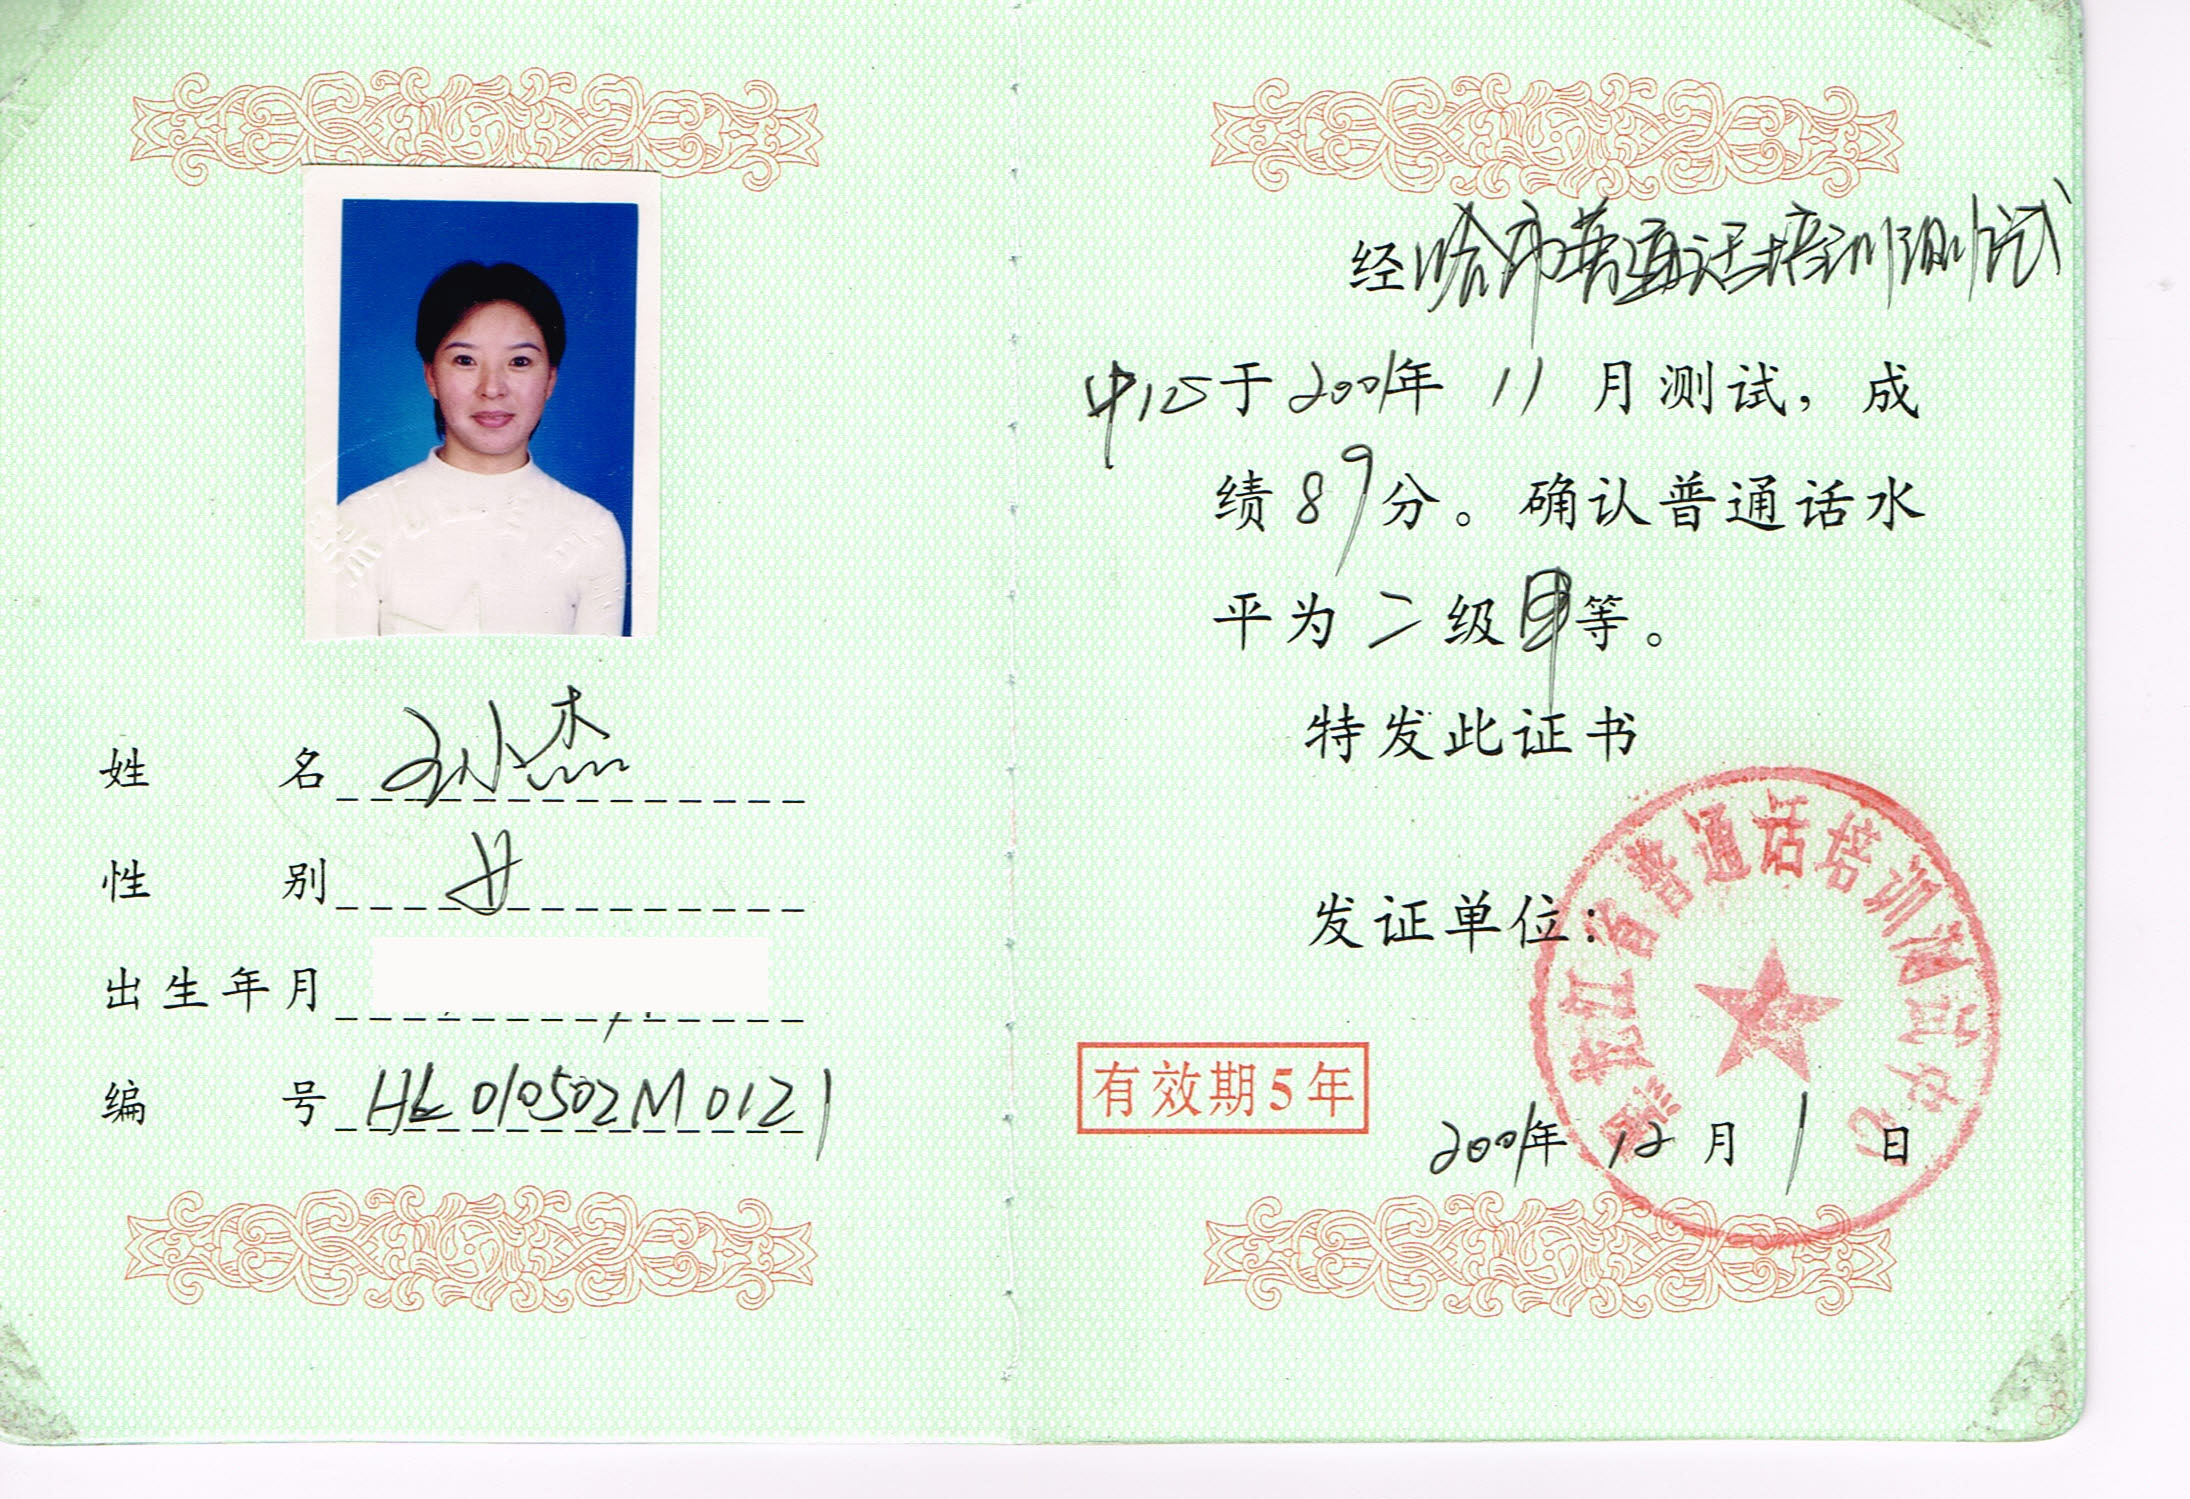 姓名 孙杰
性别 女
出生年月
编号 HL010502M0121
经哈市普通话培训测试
中心于2001年11月测试，成
绩89分。确认普通话水
平为二级甲等。
特发此证书
发证单位：
黑龙江省普通话培训测试中心
有效期5年
2001年12月1日